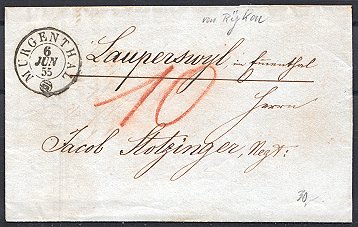 von Ryken
MURGENTHAL
6
JUN
55
Lauperswyl in Emmenthal
10
Herrn
Jacob Stotzinger, Negt:
30,-